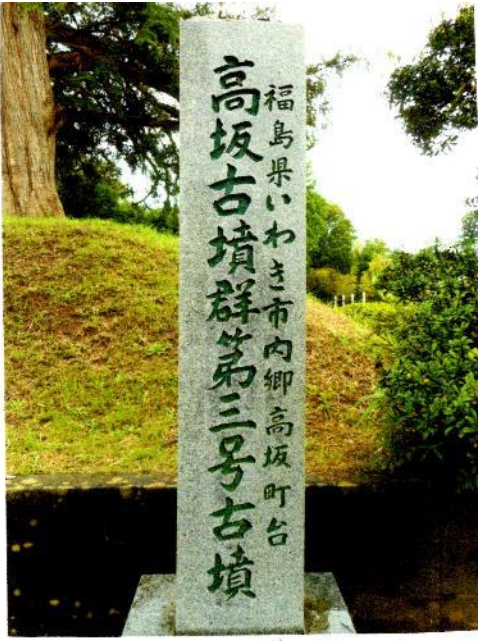 福島県いわき市内郷高坂町台
高坂古墳群第三号古墳